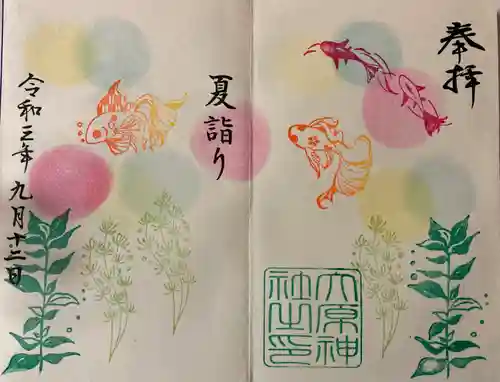 奉拝
夏詣り
令和三年 九月十二日
大原神
社之印